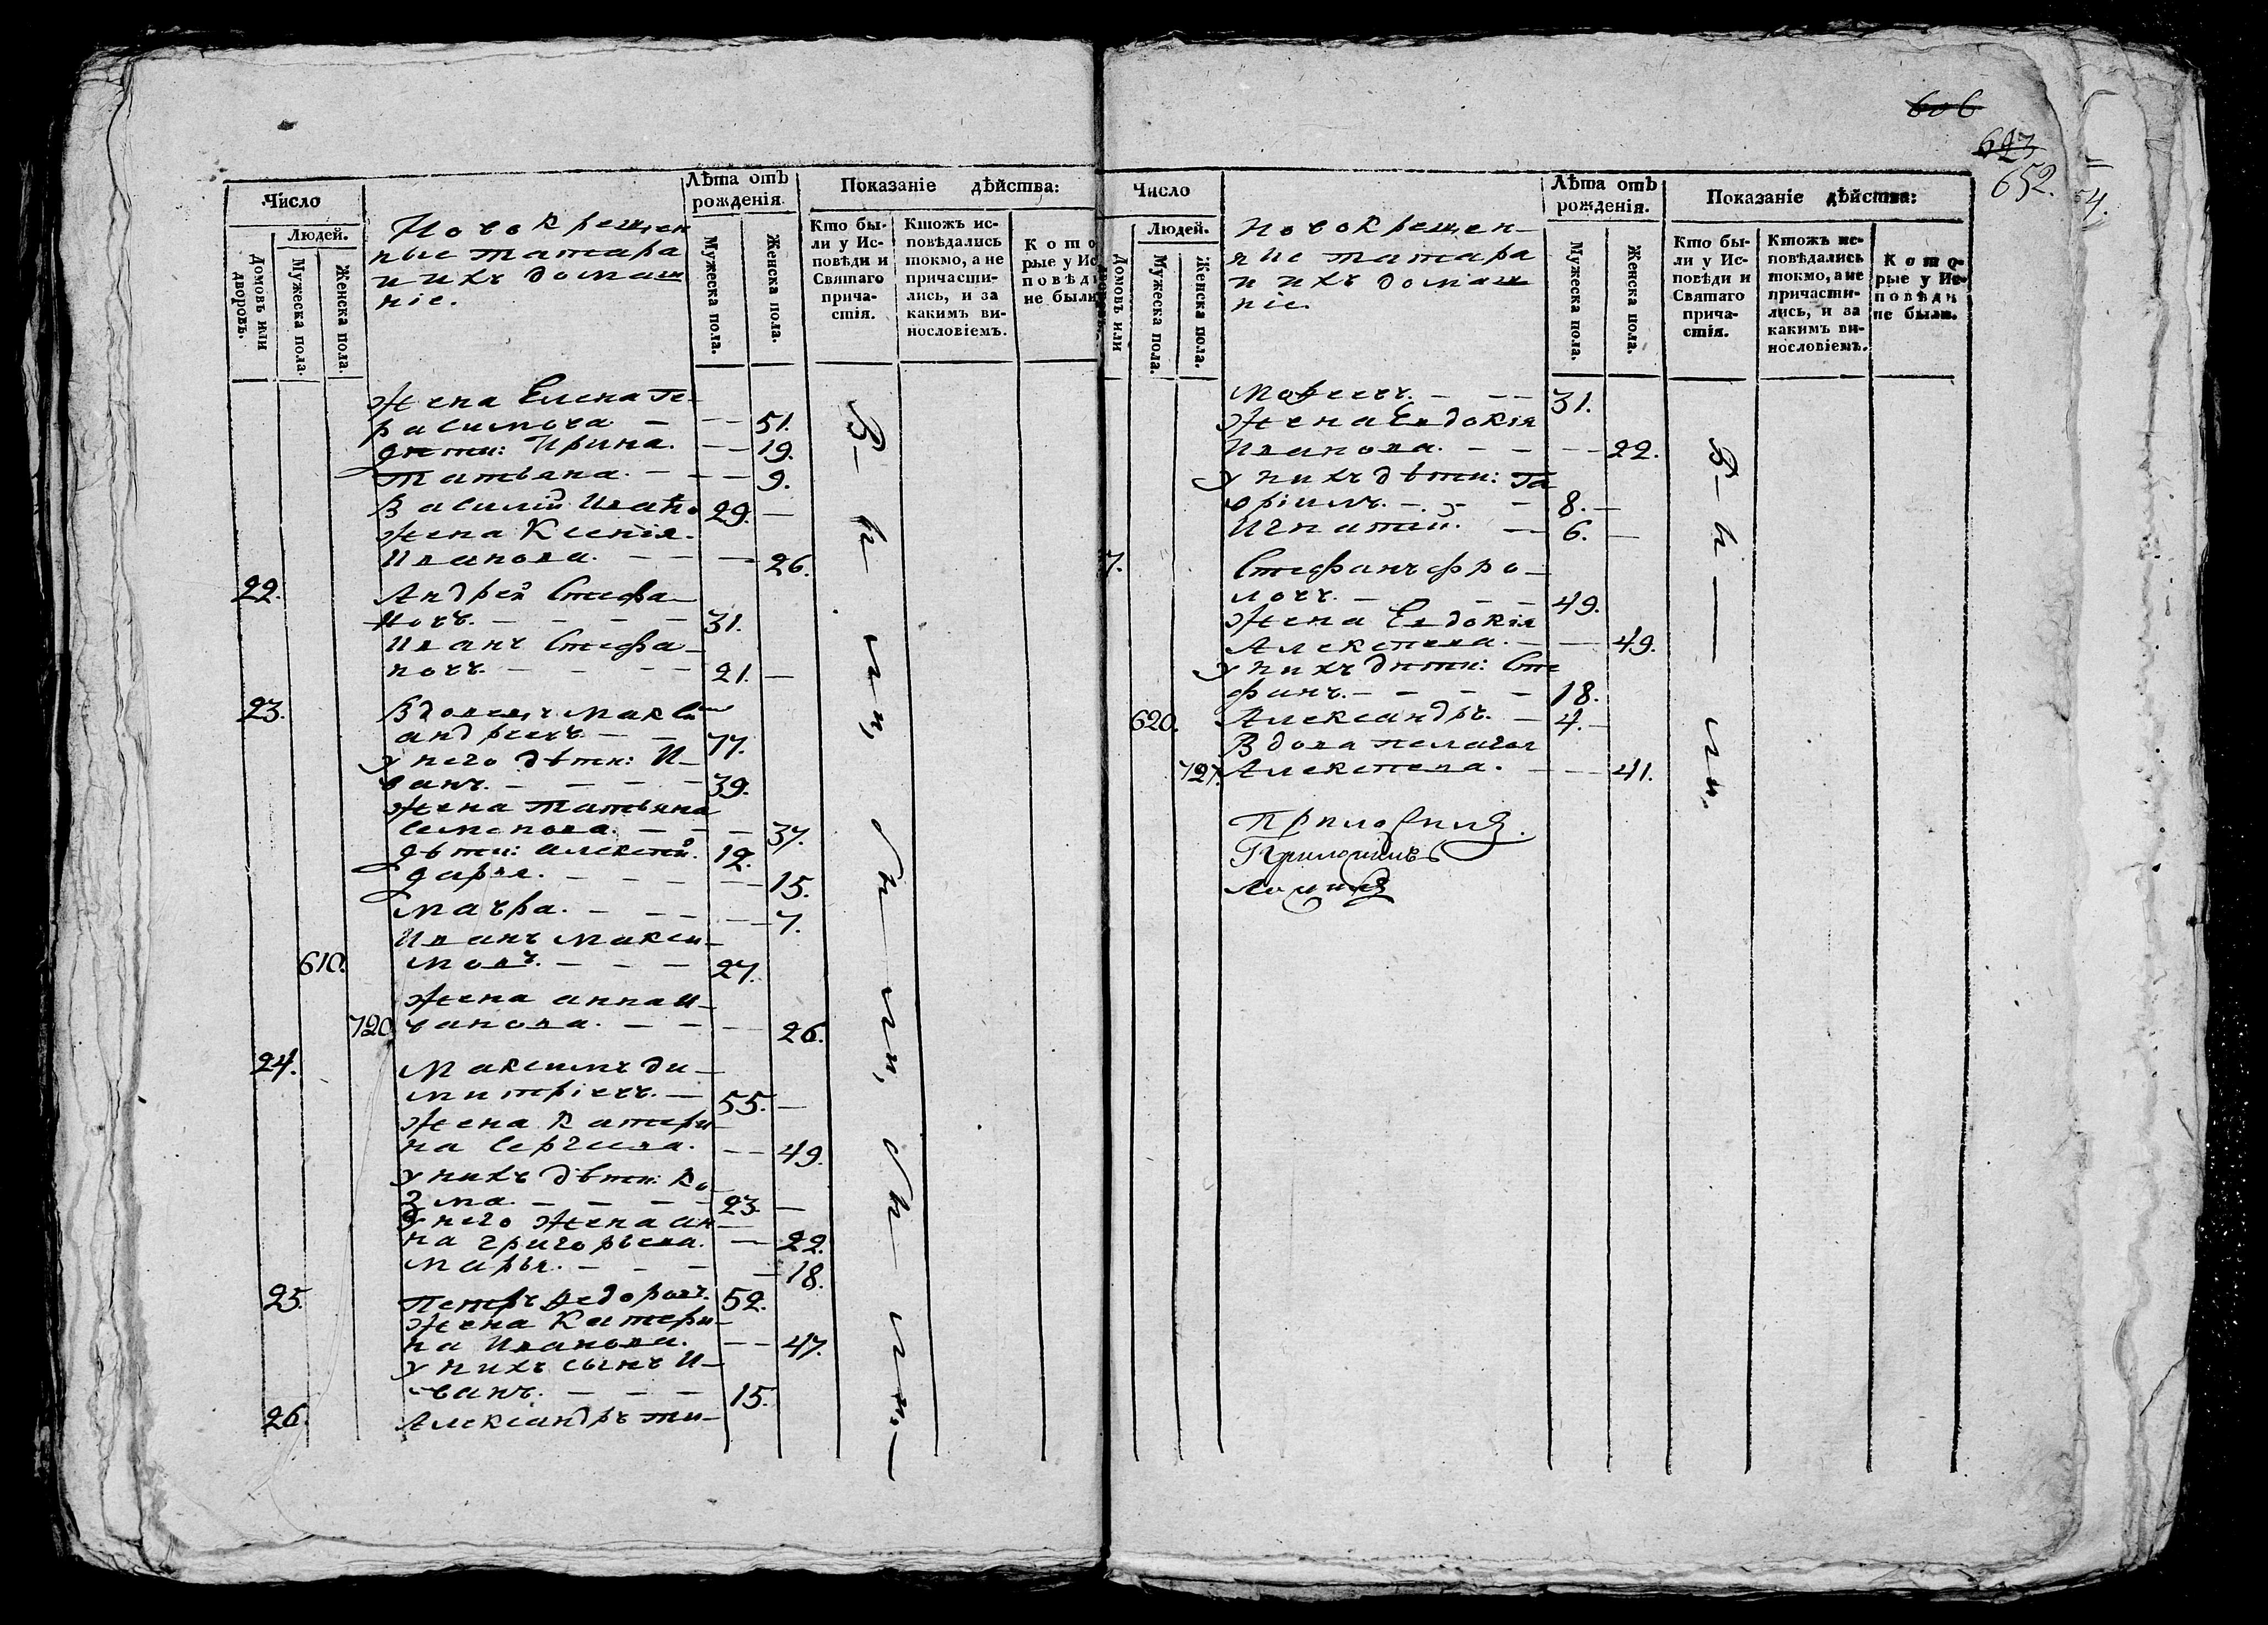 Число
Людей.
Домовъ или дворовъ.
Мужеска пола.
Женска пола.
Новокрещен
ные татара
и ихъ домаш
ніе.
Лѣта отъ рожденія.
Мужеска пола.
Женска пола.
Показаніе дѣйства:
Кто бы-
ли у Ис-
повѣди и
Святаго
прича-
стія.
Ктожъ ис-
повѣдались
токмо, а не
причасти-
лись, и за
какимъ ви-
нословіемъ.
Кото
рые у Ис
повѣди
не были
Жена Елена Ге-
расимова — — — 51.
дѣти: Ирина. — — 19.
Татьяна. — — — 9.
Василій Ивано 29. —
Жена Ксенія
Иванова. — — — 26.
22. Андрей Стефа—
новъ. — — — — 31.
Иванъ Стефа—
новъ — — — — 21. —
23. Вдовецъ Макси
андреевъ — — 77.
у него дѣти: И—
ванъ. — — — — 39.
Жена Татьяна
Семенова. — — — 37.
дѣти: алексѣй. 12.
дарья. — — — — 15.
Мавра. — — — — 7.
Иванъ Макси—
610. мовъ. — — — 27.
Жена анна И—
720 ванова. — — — 26.
24. Максимъ ди—
митріевъ. — 55. —
Жена Катери—
на Сергеева. — — 49.
у нихъ дѣти: Ко—
зма. — — — — 23. —
у него жена ан—
на григорьева. — 22.
Марья. — — — — 18.
25. Петръ Федоровъ. 52.
Жена Катери—
на Иванова. — — 47.
у нихъ сынъ И—
ванъ. — — — 15.
26. Александръ ти—
606
623
652.
54.
Число
Людей.
Домовъ или
дворовъ.
Мужеска пола.
Женска пола.
Новокрещен—
ные татара
и ихъ домаш
ніе.
Лѣта отъ рожденія.
Мужеска пола.
Женска пола.
Показаніе дѣйства:
Кто бы-
ли у Ис-
повѣди и
Святаго
прича-
стія.
Ктожъ ис-
повѣдались
токмо, а не
причасти-
лись, и за
какимъ ви-
нословіемъ.
Кото-
рые у Ис-
повѣди
не были.
мофеевъ. — — — 31.
Жена Евдокія
Иванова. — — — — 22.
у нихъ дѣти: Га
вріилъ. — — — 8. —
Игнатій. — 6. —
7. Стефанъ фро—
ловъ. — — — — 49.
Жена Евдокія
Алексѣева. — — 49.
у нихъ дѣти: Сте
фанъ. — — — — 18.
620. Александръ. — 4. —
Вдова пелагея
727. Алексѣева. — — — 41.